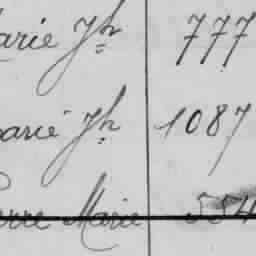 arie Jh 777
arie Jh 1087
erre Marie 554